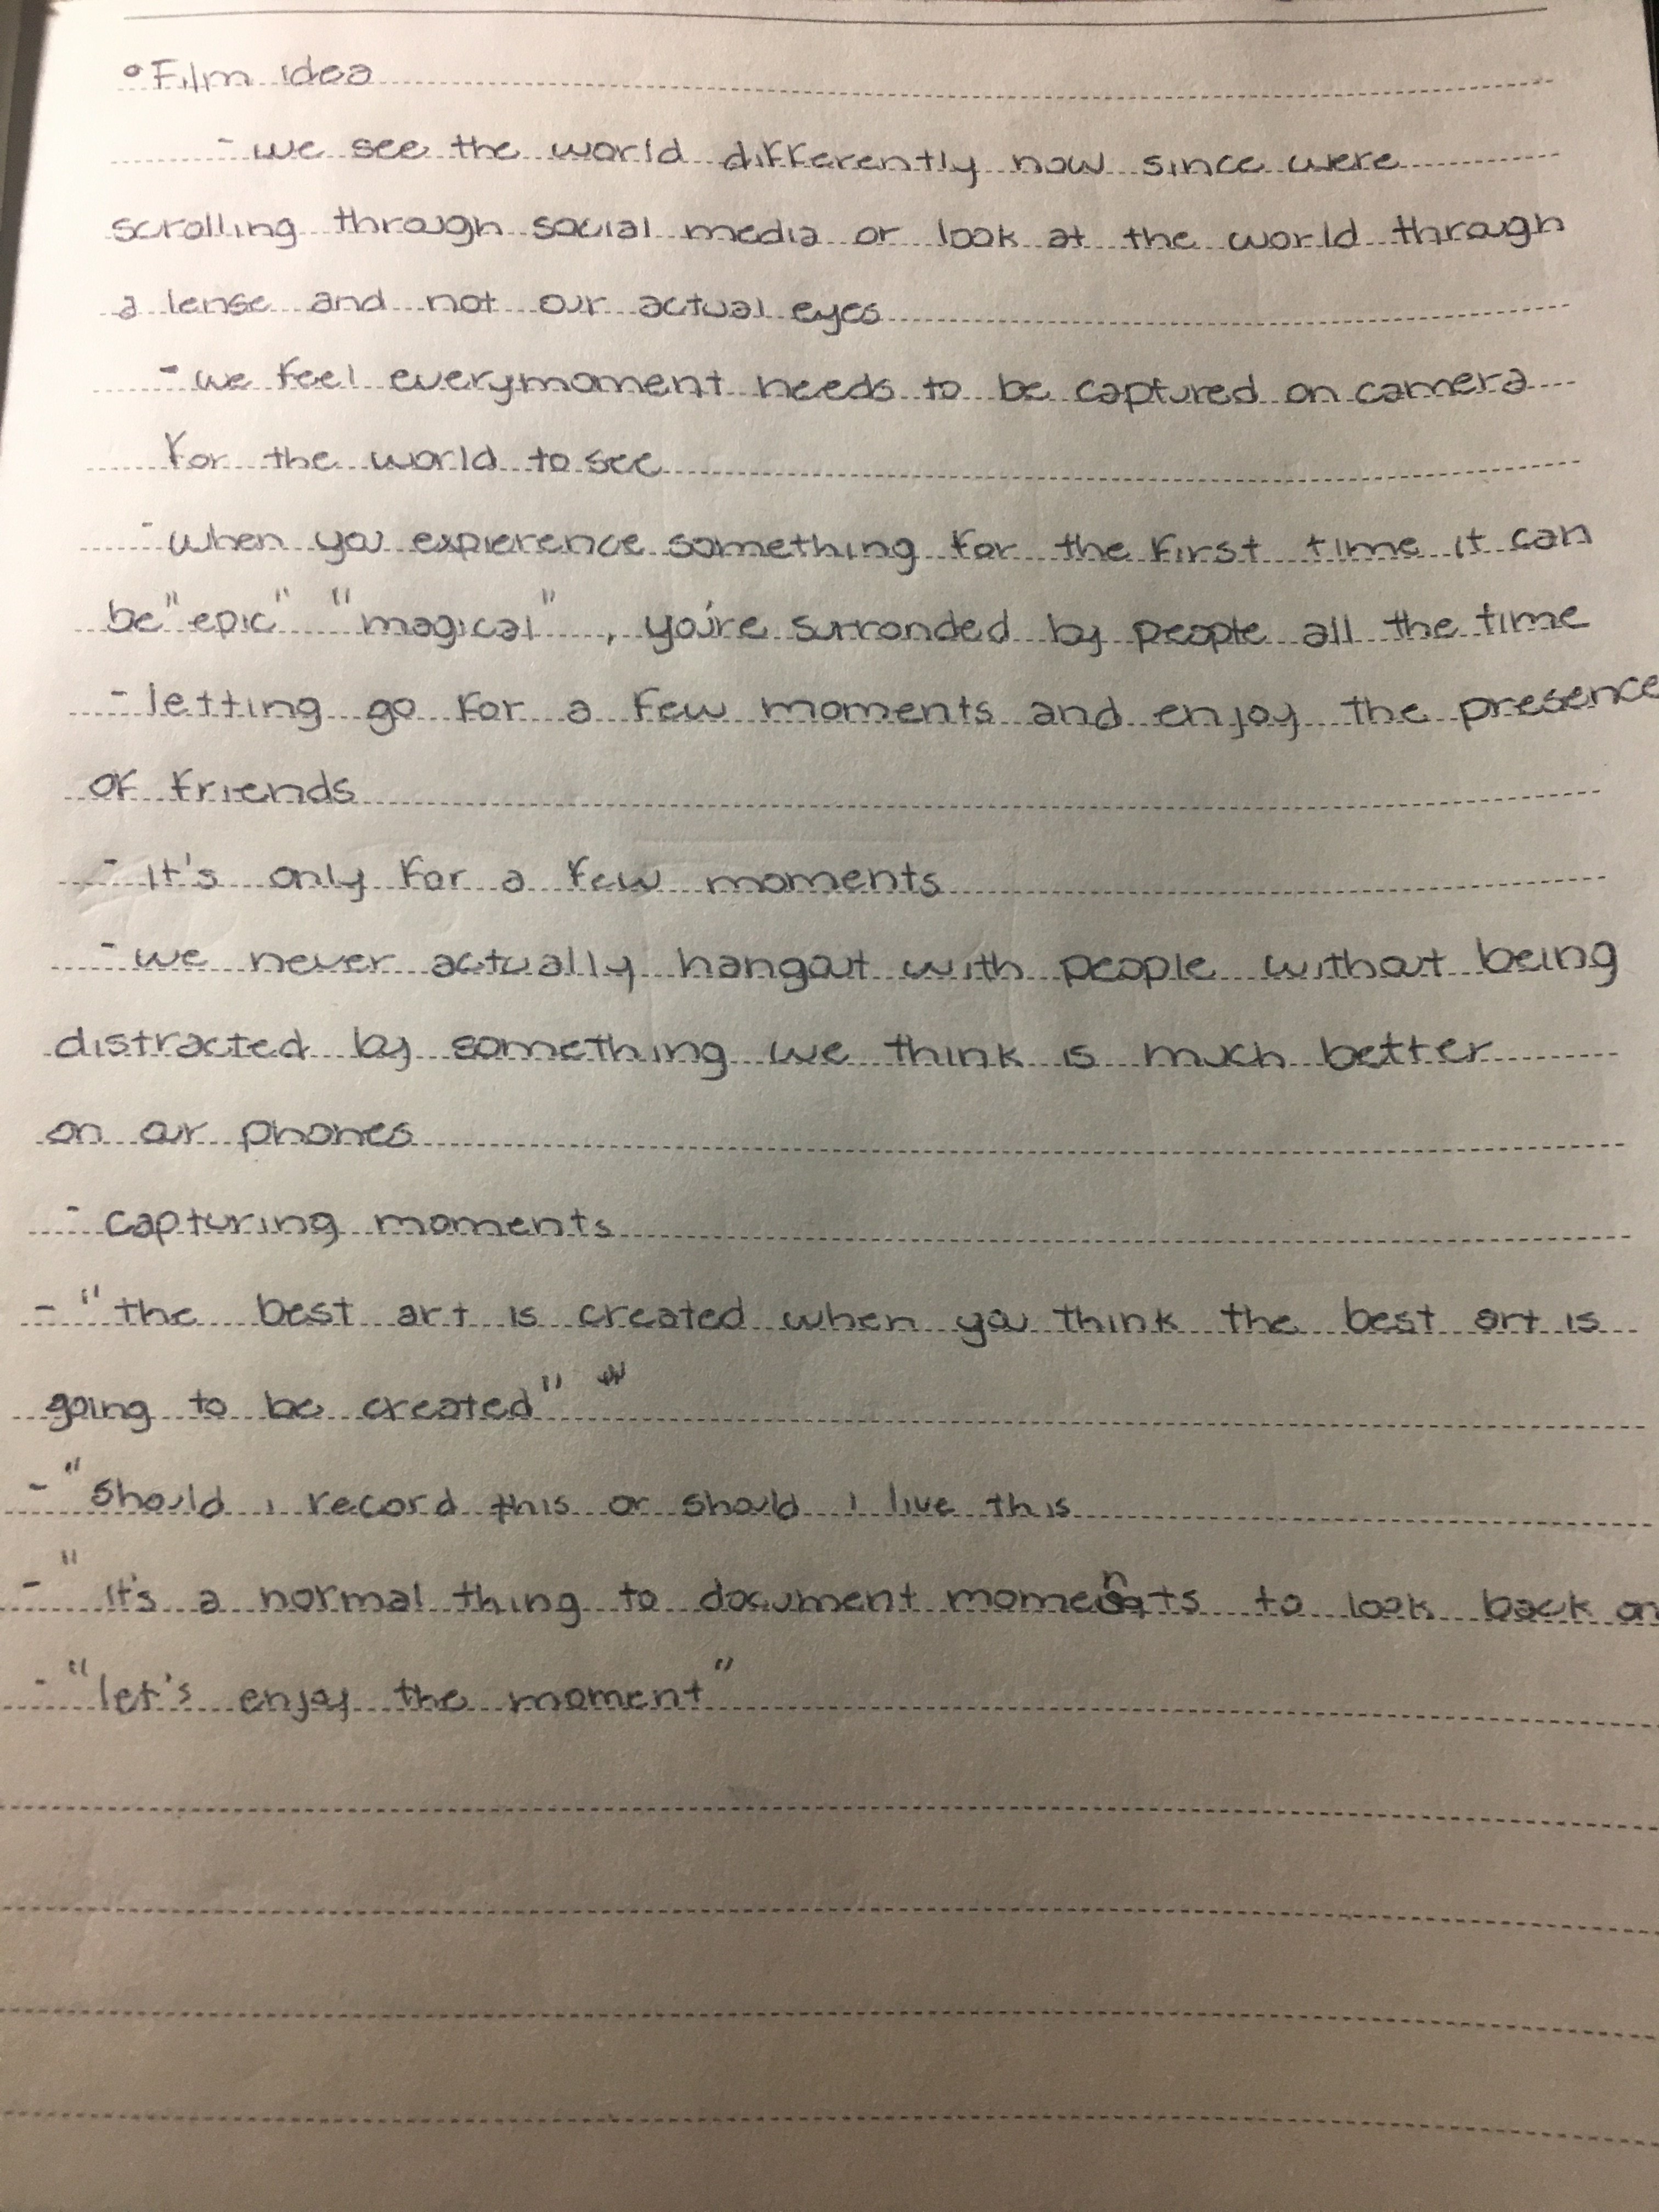 ° Film idea
- we see the world differently now since were
scrolling through social media or look at the world through
a lense and not our actual eyes
- we feel everymoment needs to be captured on camera
for the world to see
- when you expierence something for the first time it can
be "epic" "magical", you're surronded by people all the time
- letting go for a few moments and enjoy the presence
of friends
- it's only for a few moments
- we never actually hangout with people without being
distracted by something we think is much better
on our phones
- capturing moments
- "the best art is created when you think the best art is
going to be created"
- "should i record this or should i live this
- "it's a normal thing to document moments to look back on
- "let's enjoy the moment"